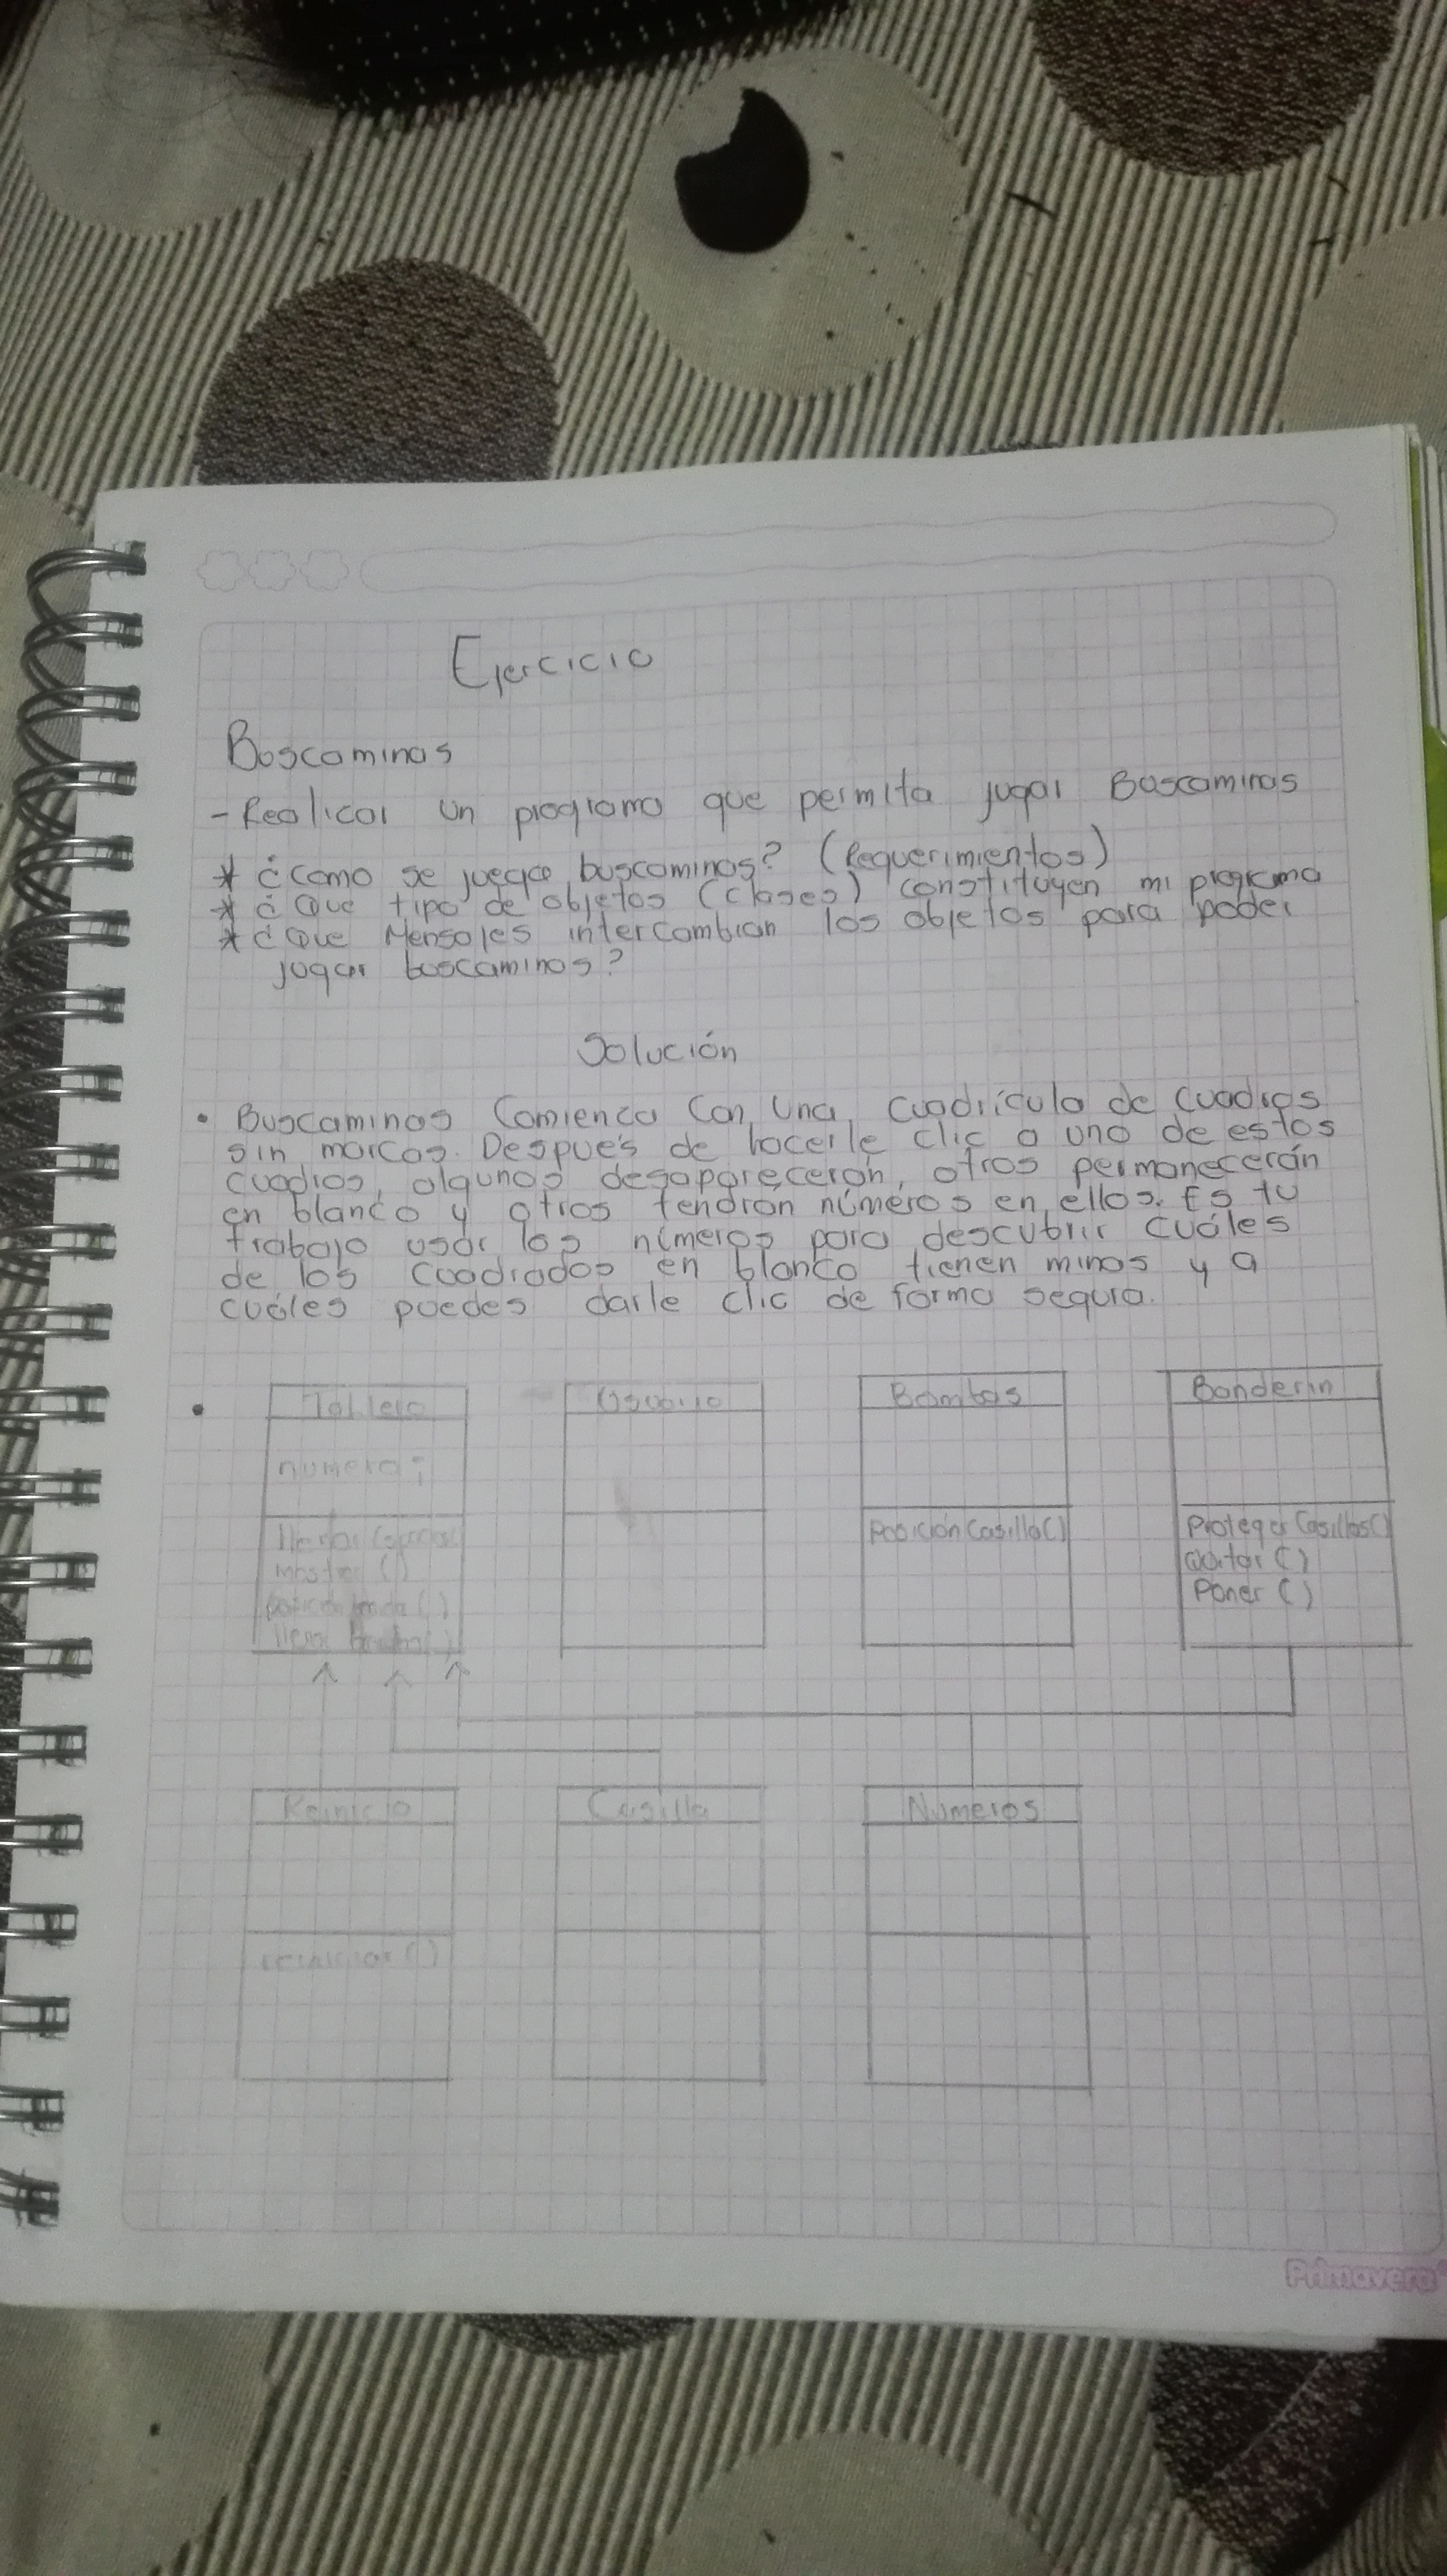 Ejercicio
Buscaminas
- Realicar un programa que permita jugar Buscaminas
* ¿Como se juega buscaminas? (Requerimientos)
* ¿Que tipo de objetos (clases) constituyen mi programa
* ¿Que Mensajes intercambian los objetos para poder
jugar buscaminas?
Solución
• Buscaminas Comienca Con Una cuadrícula de cuadros
sin marcas. Después de hacerle clic a uno de estos
cuadros, algunos desaparecerán, otros permanecerán
en blanco y otros tendrán números en ellos. Es tu
trabajo usar los números para descubrir cuáles
de los cuadrados en blanco tienen minas y a
cuáles puedes darle clic de forma segura.
• Tablero Usuario Bombas Banderin
numero;
Posición Casilla() Proteger Casillas()
mostrar () Quitar ()
Poner ()
Reinicio Casilla Numeros
reiniciar ()
Primavera